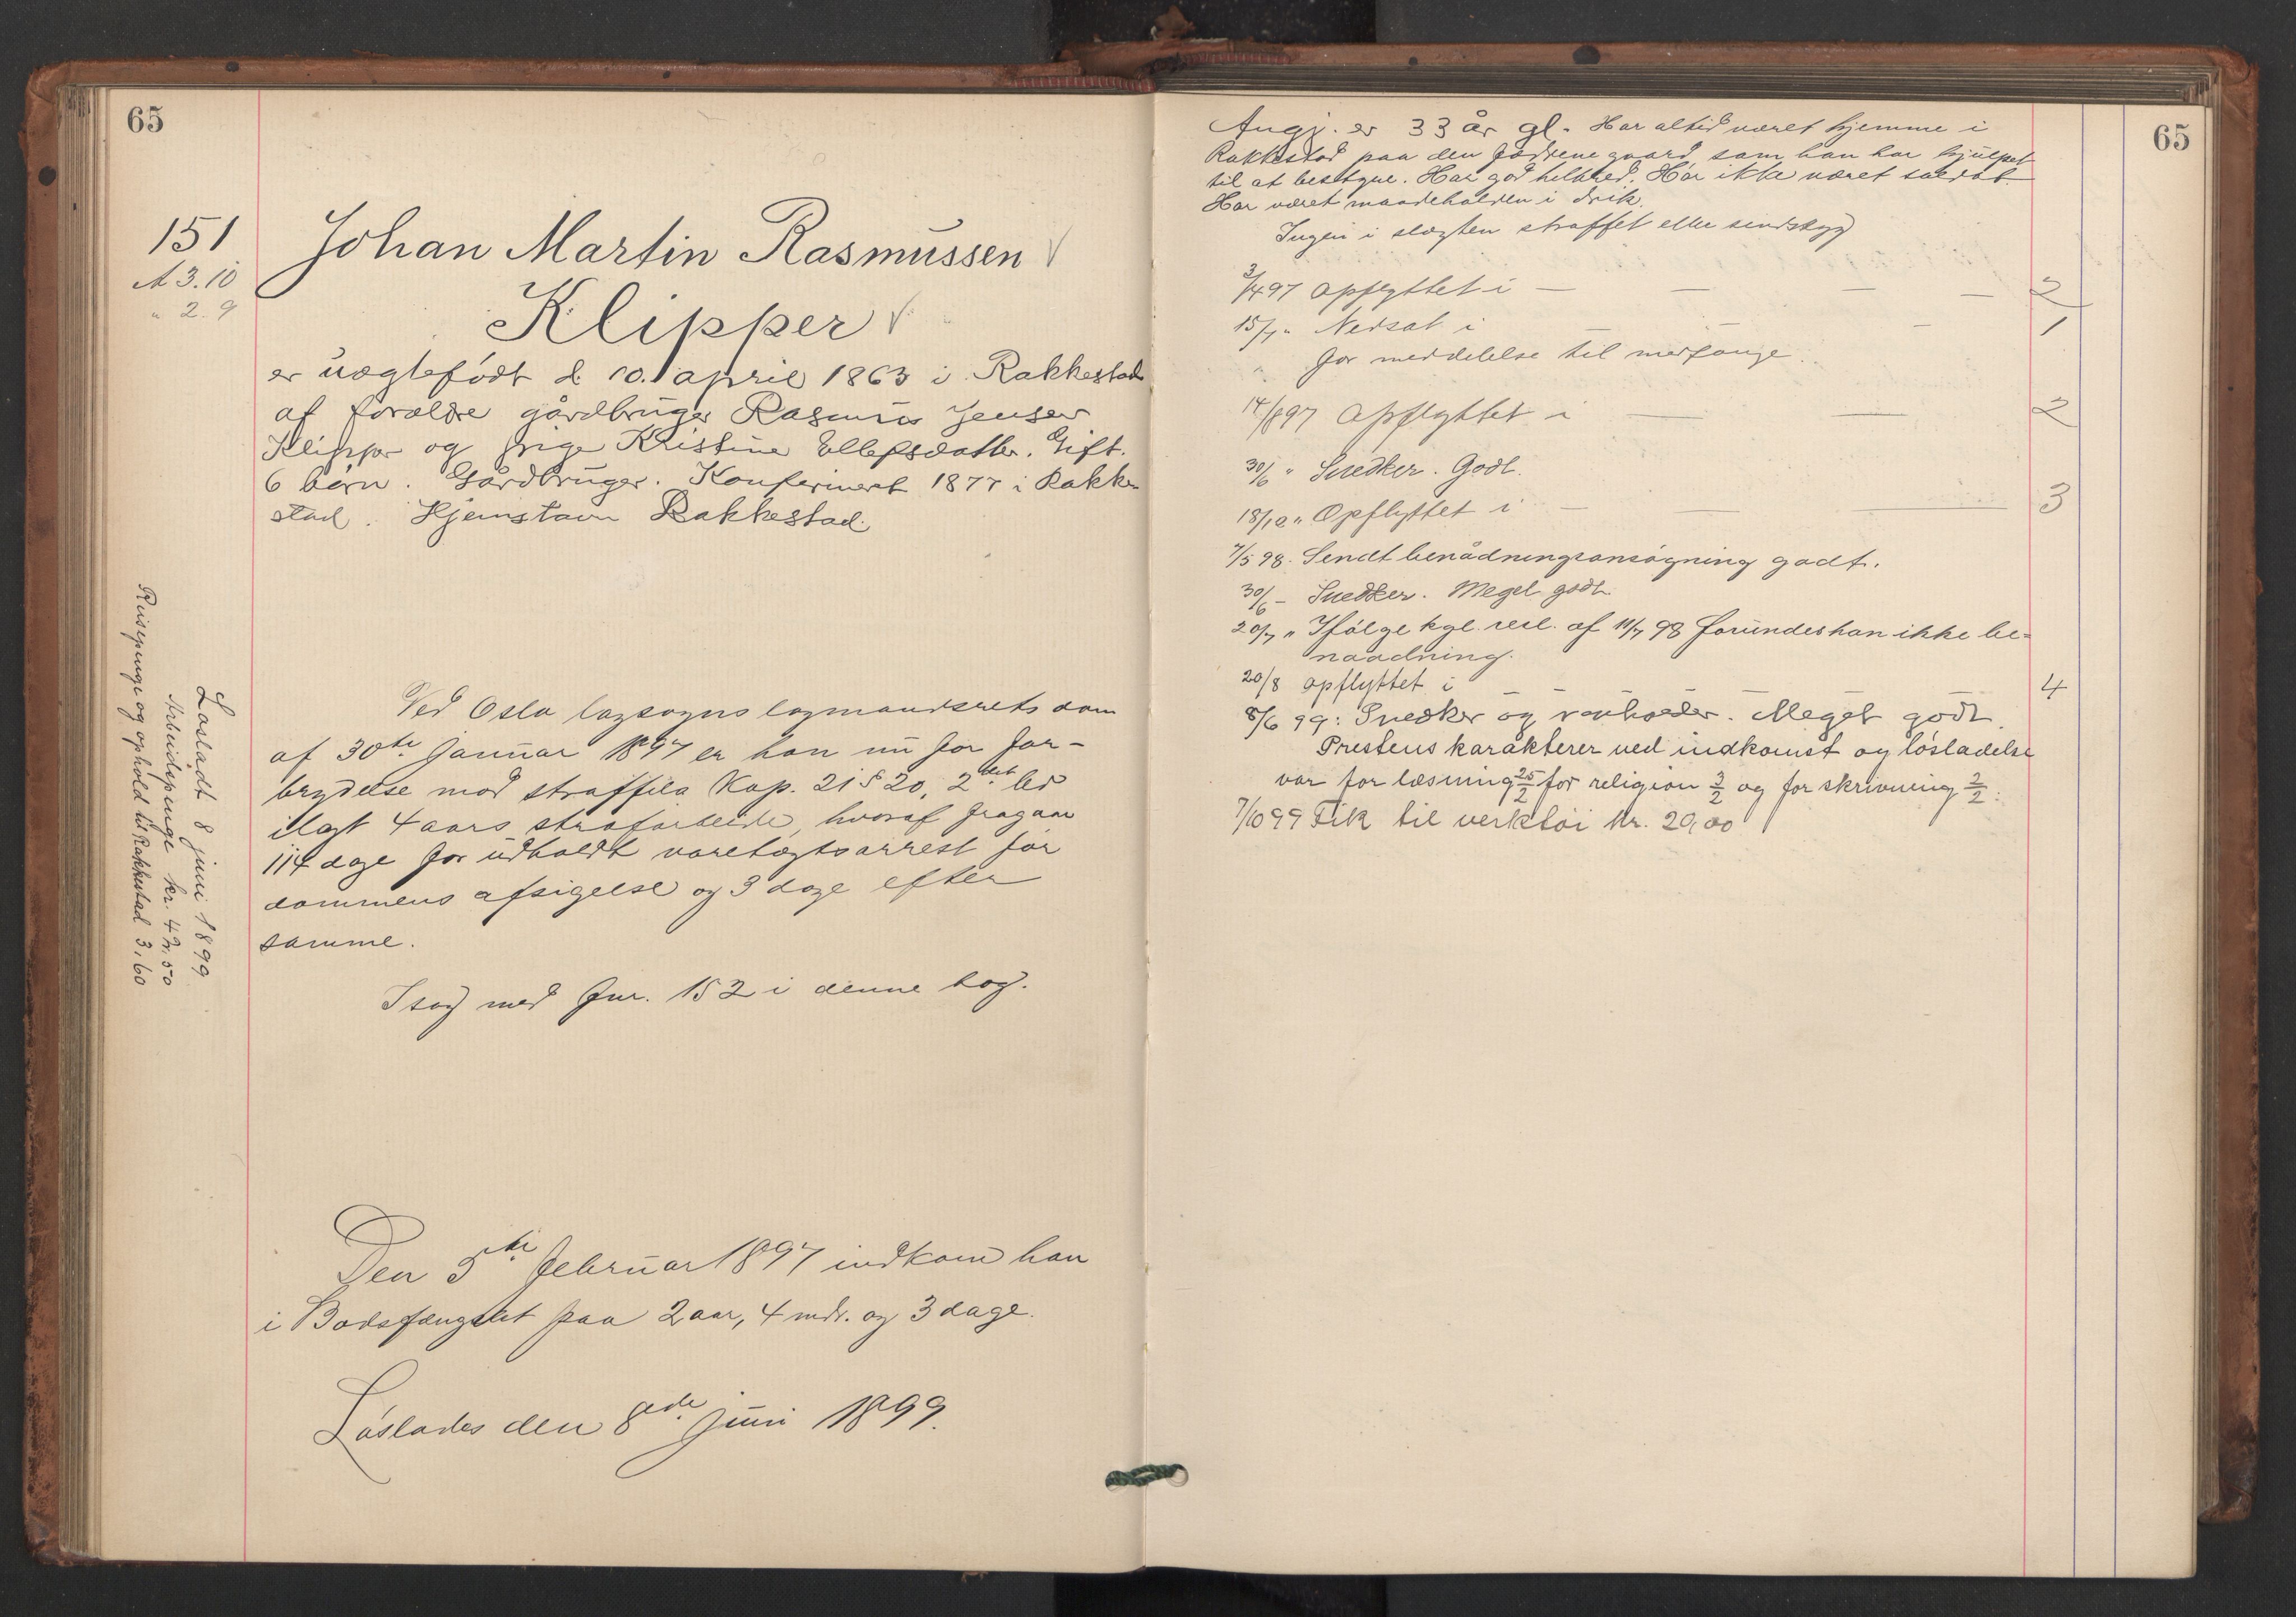 65
151
A 3.10
" 2.9
Johan Martin Rasmussen
Klipper
er uægtefödt d. 10. april 1863 i Rakkestad
af forældre gårdbruger Rasmus Jensen
Klipper og pige Kristine Ellefsdatter. Gift.
6 börn. Gårdbruger. Konfirmert 1877 i Rakke-
stad. Hjemstavn Rakkestad.
Ved Oslo lagsogns lagmandsrets dom
af 30te januar 1897 er han nu for for-
brydelse mod straffelo Kap. 21 § 20, 2det led
ilagt 4 aars strafarbeide, hvoraf fragaar
114 dage for udholdt varetægtsarrest før
dommens afsigelse og 3 dage efter
samme.
I sag med fnr. 152 i denne bog.
Den 5te februar 1897 indkom han
i Bodsfængslet paa 2 aar, 4 mdr. og 3 dage.
Löslades den 8de juni 1899.
Løsladt 8 juni 1899
Arbeidspenge kr. 42.50
Reisepenge og ophold til Rakkestad 3,60
65
Angj. er 33 år gl. Har altid været hjemme i
Rakkestad paa den fædrene gaard, som han har hjulpet
til at bestyre. Har god helbred. Har ikke været soldat.
Har været maadeholden i drik.
Ingen i slægten straffet eller sindssyg
3/4 97 Opflyttet i — — — — 2
15/7 " Nedsat i — — 1
" for meddelelse til medfange.
14/8 97 Opflyttet i — — 2
30/6 " Snedker. Godt.
18/12 " Opflyttet i — — — 3
7/5 98. Sendt benådningsansögning godt.
30/6 - Snedker. Meget godt.
20/7 " Ifölge kgl. resl. af 11/7 98 forundes han ikke be-
naadning.
20/8 opflyttet i — — — 4
8/6 99: Snedker og renholder. Meget godt.
Prestens karakterer ved indkomst og lösladelse
var for læsning 25/2 for religion 3/2 og for skrivning 2/2.
7/10 99 Fik til verktöi kr. 20,00